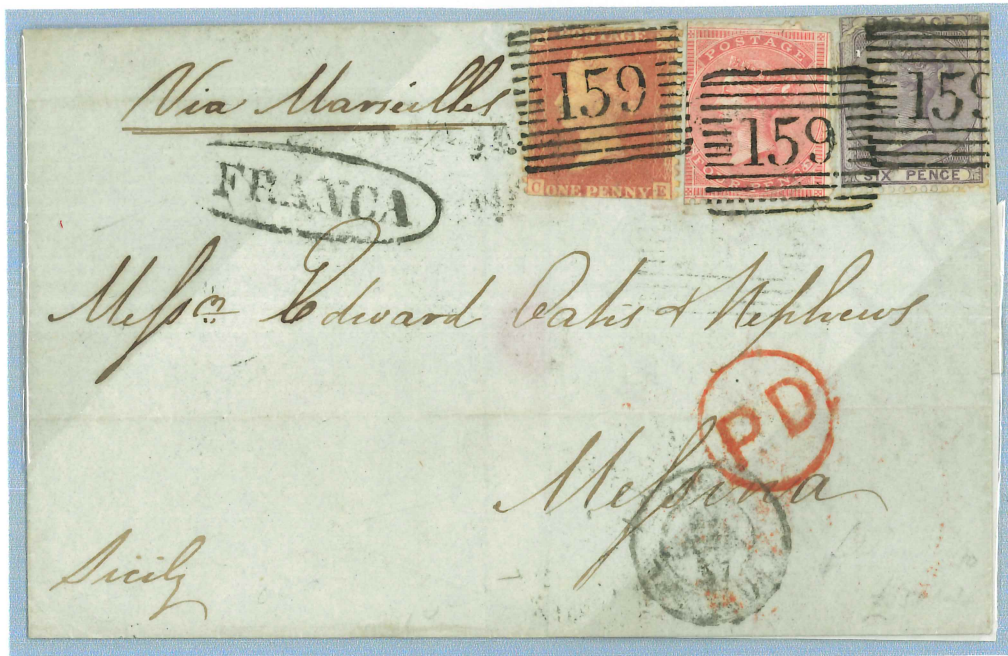 Via Marseilles
FRANCA
159
POSTAGE
ONE PENNY
C E
159
POSTAGE
FOUR PENCE
159
POSTAGE
SIX PENCE
Messrs Edward Oates & Nephews
PD
Messina
Sicily